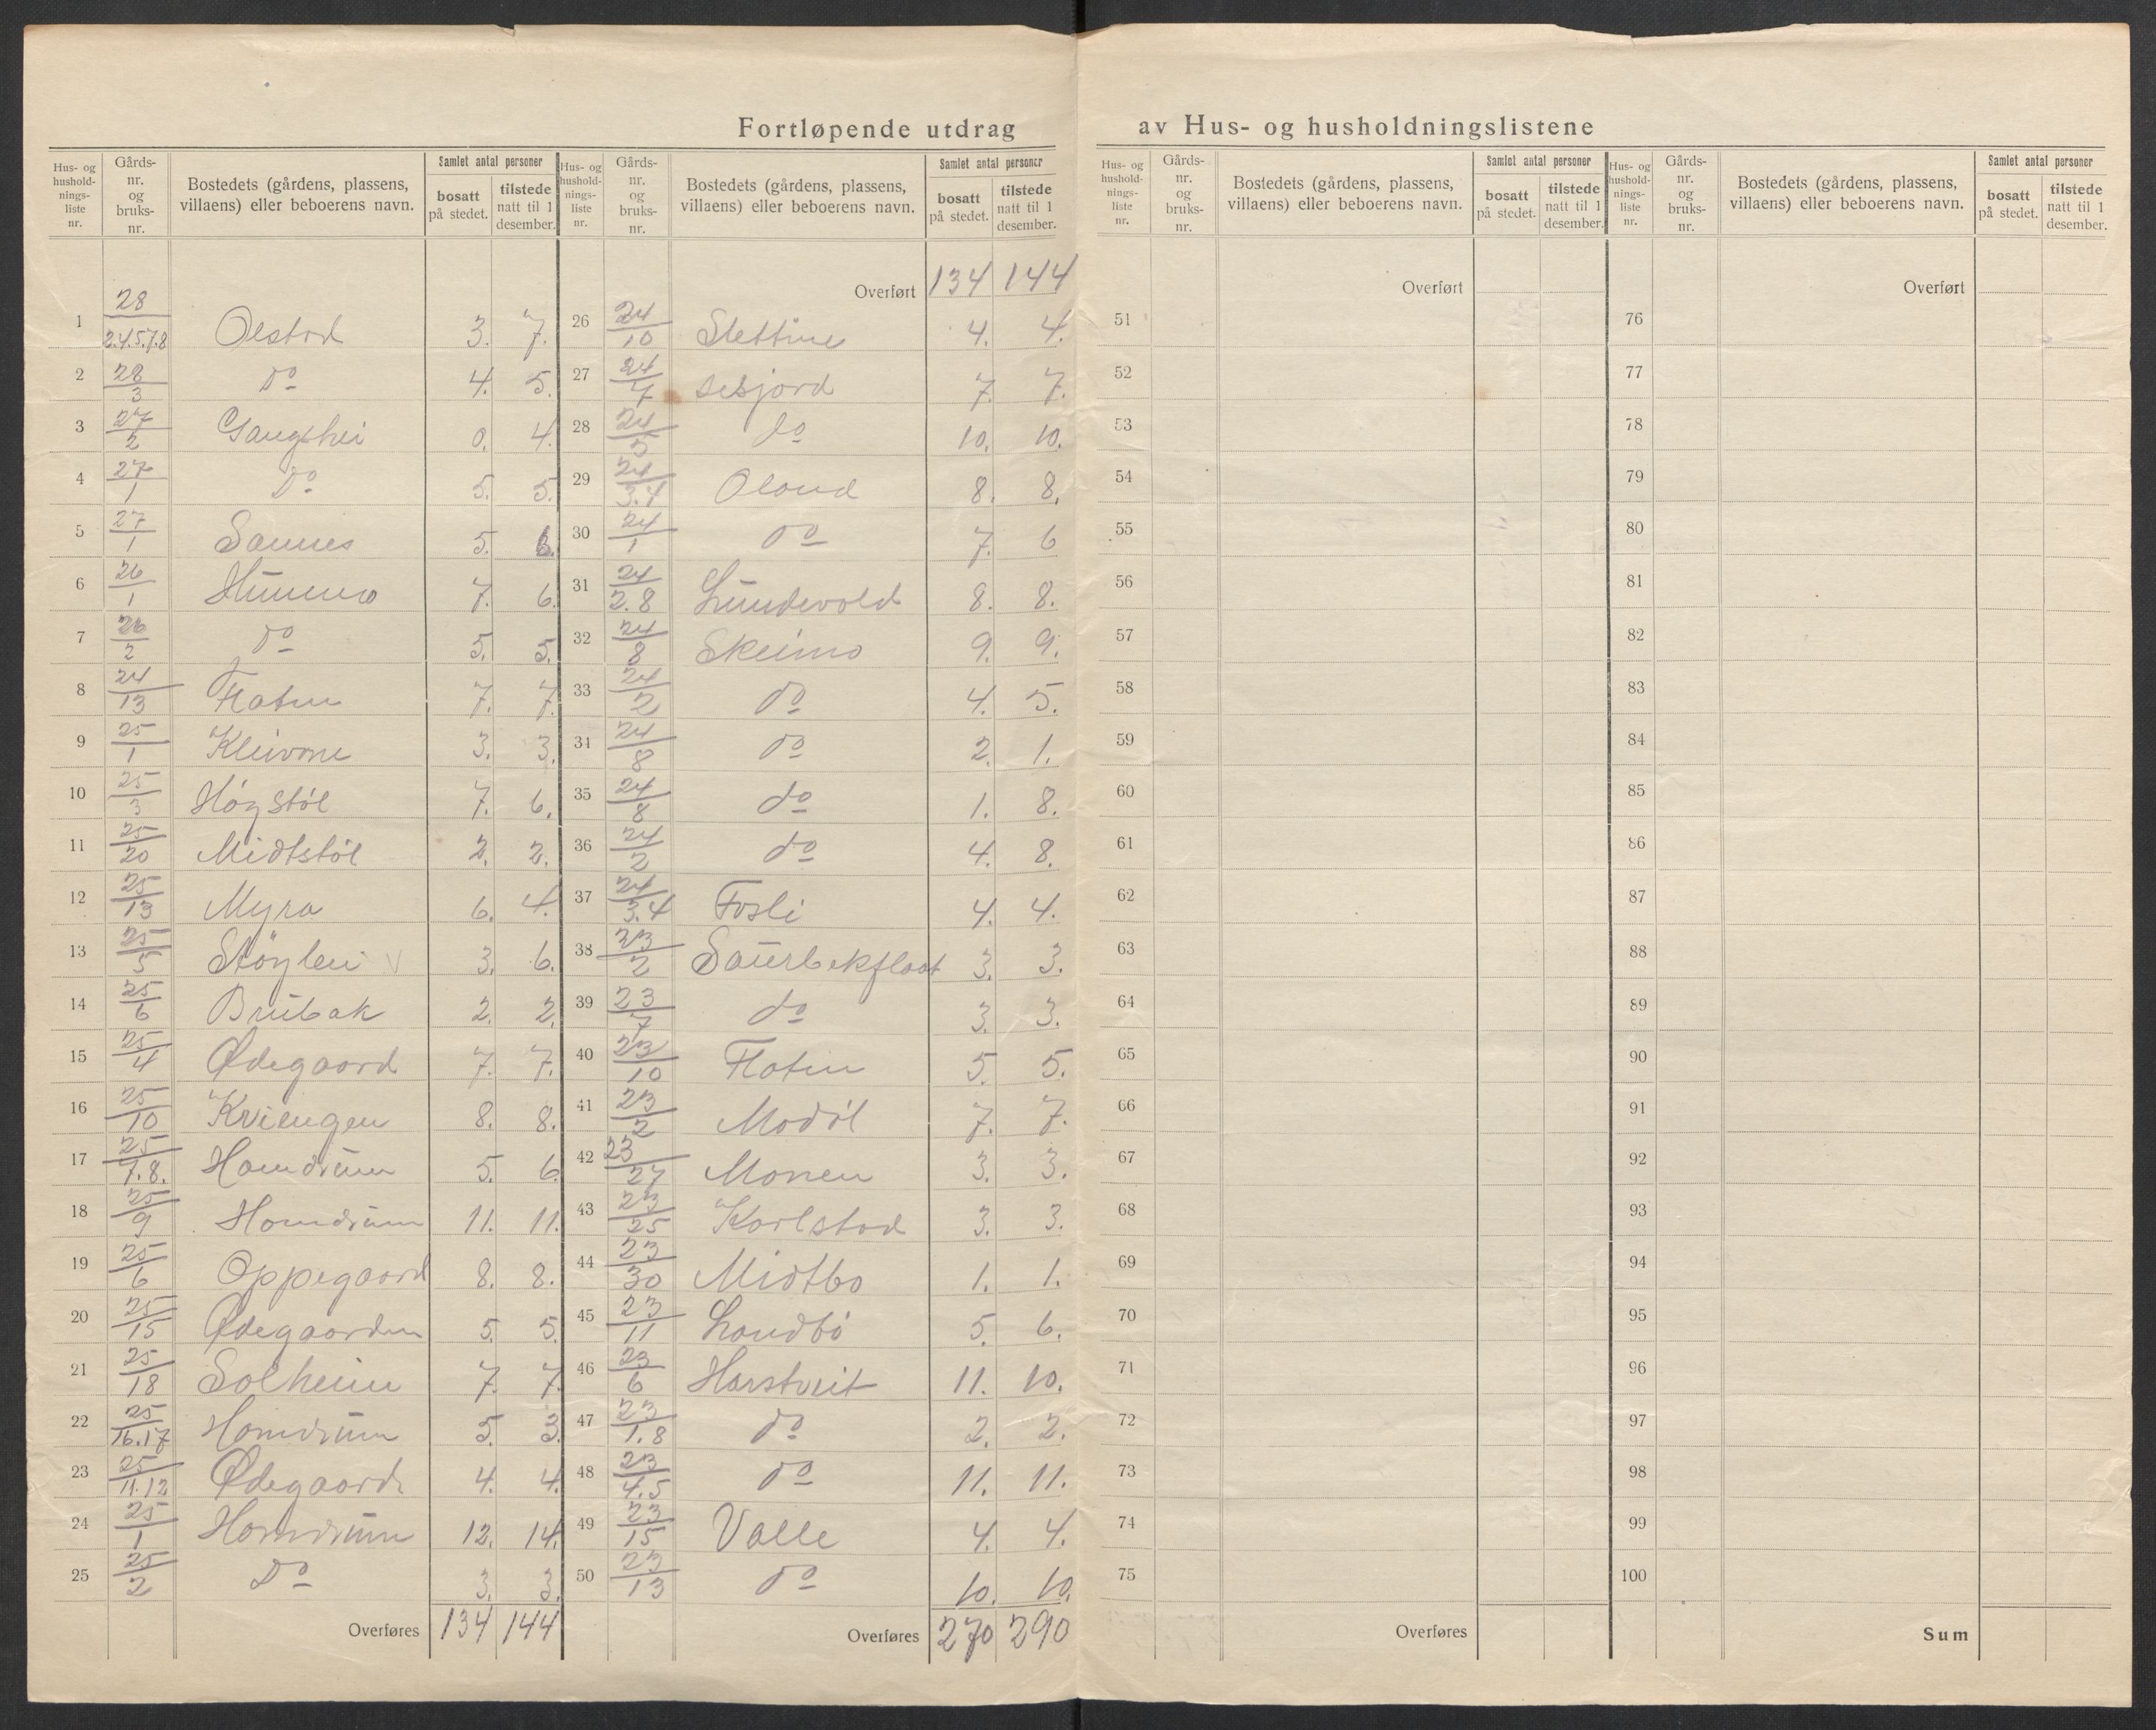 Fortløpende utdrag av Hus- og husholdningslistene
Hus- og hushold-nings-liste nr. | Gårds-nr. og bruks-nr. | Bostedets (gårdens, plassens, villaens) eller beboerens navn. | Samlet antal personer | bosatt på stedet. | tilstede natt til 1 desember.
1 28/2.4.5.7.8 Olstad 3. 7.
2 28/3 Do 4. 5.
3 27/2 Gangshei 0. 4.
4 27/1 Do 5. 5.
5 27/1 Sannes 5. 6.
6 26/1 7. 6.
7 26/2 do 5. 5.
8 24/13 Flaten 7. 7.
9 25/1 Kleivane 3. 3.
10 25/3 Høgstøl 7. 6.
11 25/20 Midtstøl 2. 2.
12 25/13 Myra 6. 4.
13 25/5 Støylen V 3. 6.
14 25/6 Brubak 2. 2.
15 25/4 Ødegaard 7. 7.
16 25/10 Kviengen 8. 8.
17 25/7.8. Homdrum 5. 6.
18 25/9 Homdrum 11. 11.
19 25/6 Oppegaard 8. 8.
20 25/15 Ødegaarden 5. 5.
21 25/18 Solheim 7. 7.
22 25/16.17 Homdrum 5. 3.
23 25/11.12 Ødegaard 4. 4.
24 25/1 Homdrum 12. 14.
25 25/2 Do 3. 3.
Overføres 134 144
Hus- og hushold-nings-liste nr. | Gårds-nr. og bruks-nr. | Bostedets (gårdens, plassens, villaens) eller beboerens navn. | Samlet antal personer | bosatt på stedet. | tilstede natt til 1 desember.
Overført 134 144
26 24/10 Slettine 4. 4.
27 24/7 7. 7.
28 24/5 do 10. 10.
29 24/3.4 Oland 8. 8.
30 24/1 do 7. 6
31 24/2.8 Lundevold 8. 8.
32 24/8 Skeimo 9. 9.
33 24/2 do 4. 5.
31 24/8 do 2. 1.
35 24/8 do 1. 8.
36 24/2 do 4. 8.
37 24/3.4 Fosli 4. 4.
38 23/2 Saurbekflaat 3. 3.
39 23/7 do 3. 3.
40 23/10 Flaten 5. 5.
41 23/2 Modøl 7. 7.
42 23/27 Monen 3. 3.
43 23/25 Karlstad 3. 3.
44 23/30 Midtbo 1. 1.
45 23/11 Landbø 5. 6.
46 23/6 Harstveit 11. 10.
47 23/1.8 do 2. 2.
48 23/4.5 do 11. 11.
49 23/15 Valle 4. 4.
50 23/13 do 10. 10.
Overføres 270 290
Hus- og hushold-nings-liste nr. | Gårds-nr. og bruks-nr. | Bostedets (gårdens, plassens, villaens) eller beboerens navn. | Samlet antal personer | bosatt på stedet. | tilstede natt til 1 desember.
Overført
51
52
53
54
55
56
57
58
59
60
61
62
63
64
65
66
67
68
69
70
71
72
73
74
75
Overføres
Hus- og hushold-nings-liste nr. | Gårds-nr. og bruks-nr. | Bostedets (gårdens, plassens, villaens) eller beboerens navn. | Samlet antal personer | bosatt på stedet. | tilstede natt til 1 desember.
Overført
76
77
78
79
80
81
82
83
84
85
86
87
88
89
90
91
92
93
94
95
96
97
98
99
100
Sum